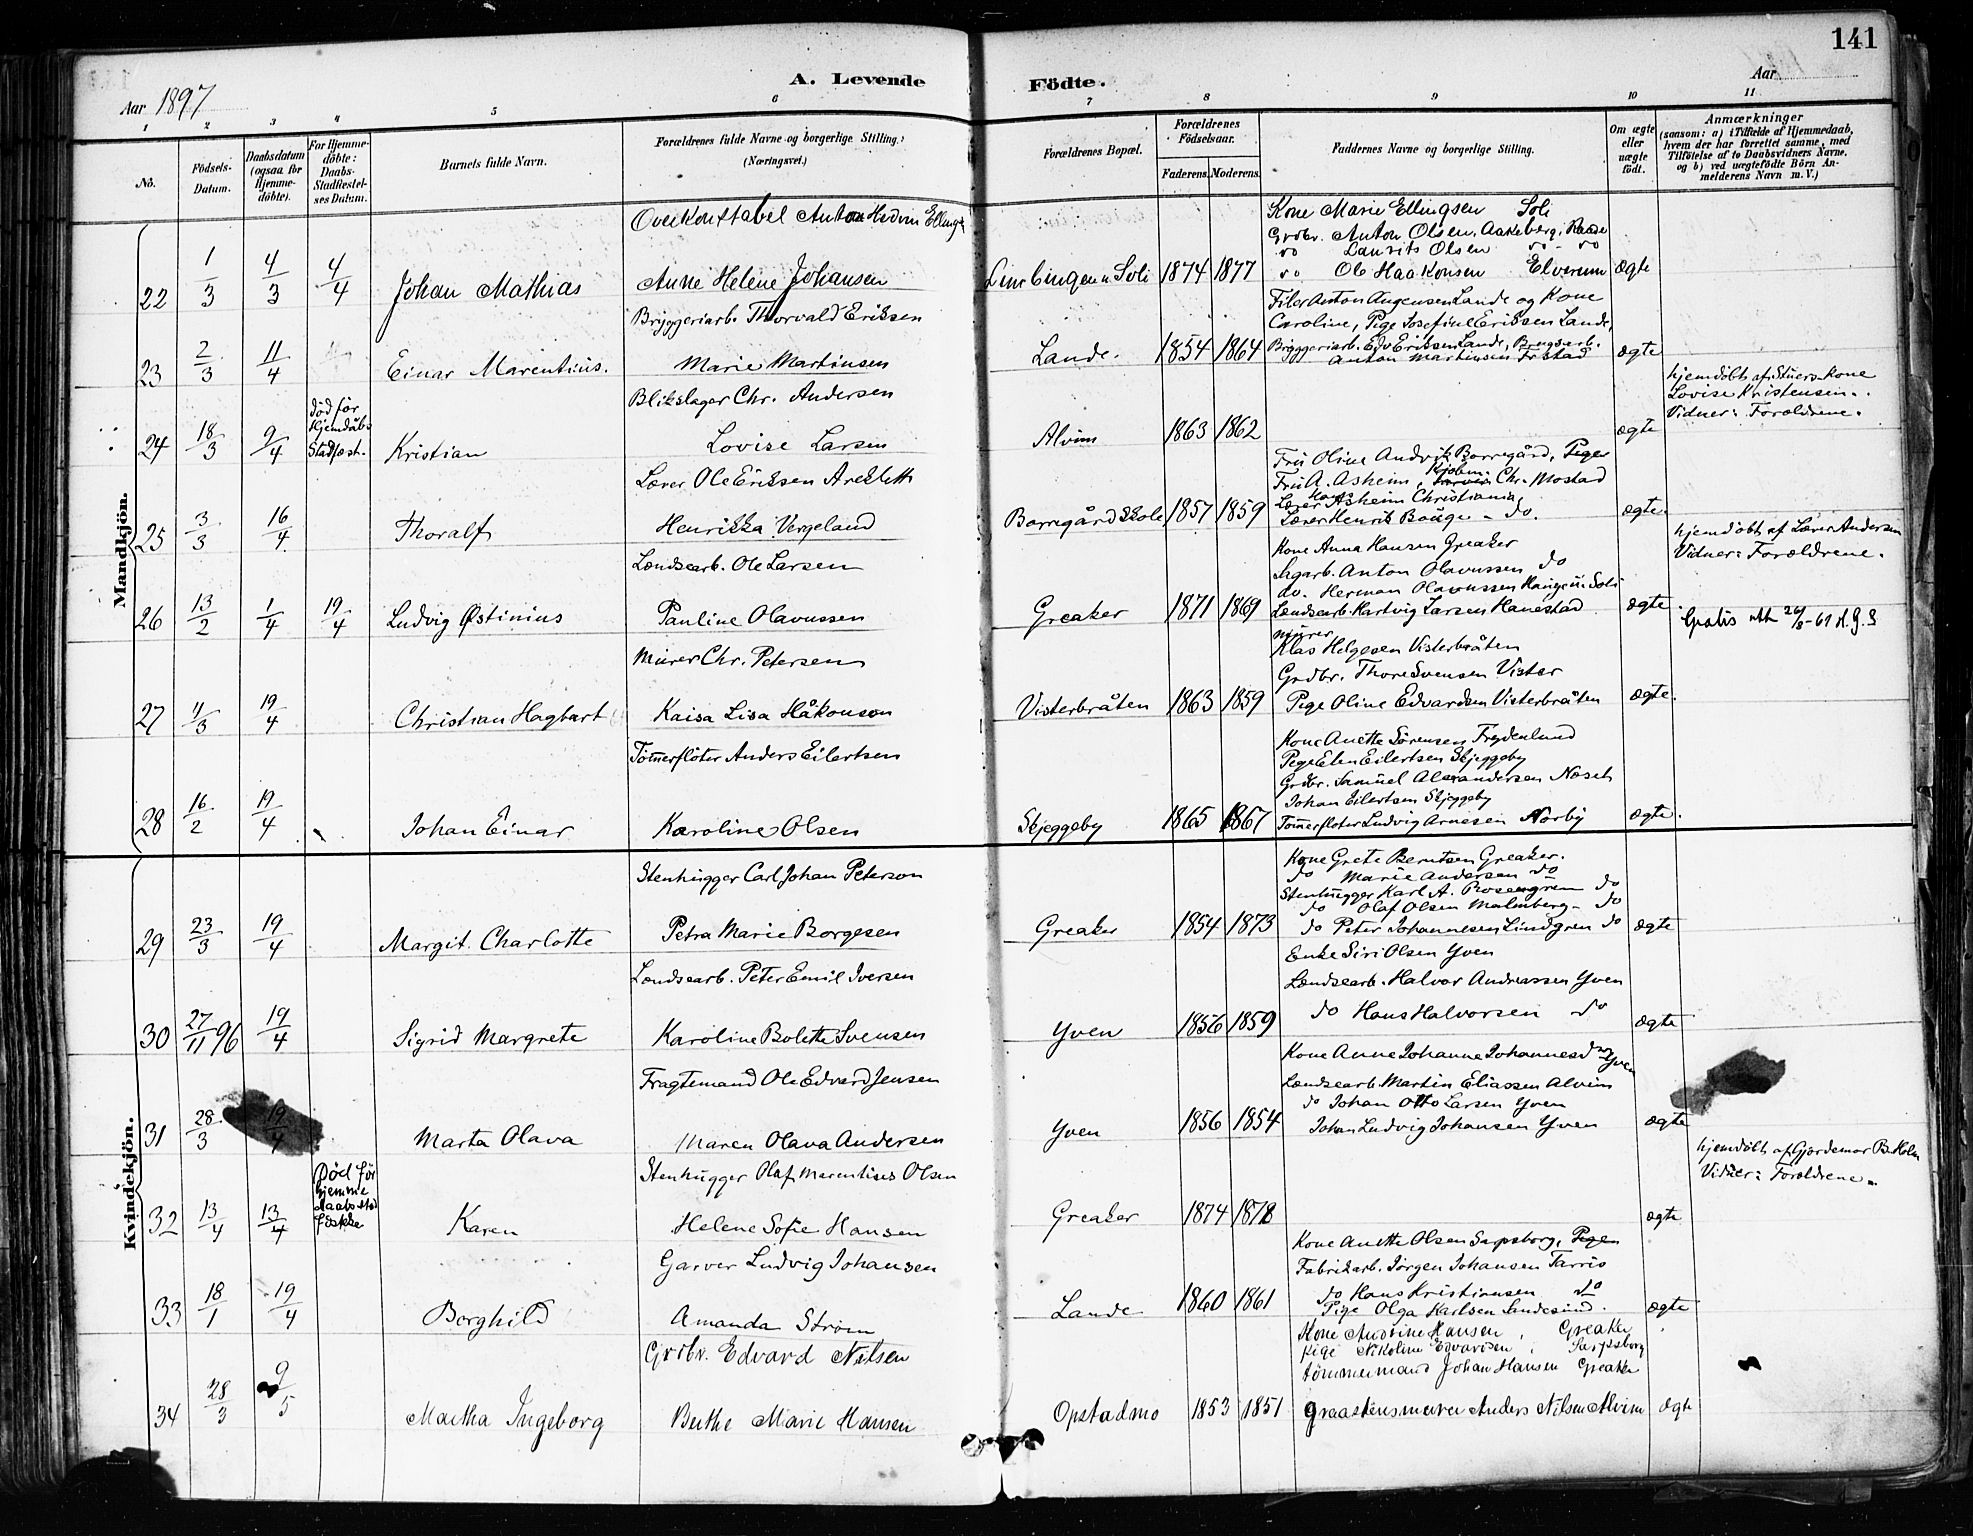 141
A. Levende Födte.
Aar 1897
Aar
1 2 3 4 5 6 7 8 9 10 11
No.
Födsels-Datum.
Daabsdatum (ogsaa for Hjemme-döbte).
For Hjemme-döbte: Daabs-Stadfæstel-ses Datum.
Barnets fulde Navn.
Forældrenes fulde Navne og borgerlige Stilling. (Næringsvei.)
Forældrenes Bopæl.
Forældrenes Födselsaar.
Faderens. Moderens.
Faddernes Navne og borgerlige Stilling.
Om ægte eller uægte födt.
Anmærkninger
(saasom: a) i Tilfælde af Hjemmedaab, hvem der har forrettet samme, med Tilföielse af to Daabsvidners Navne. og b) ved uægtefödte Börn An-melderens Navn m. V.)
Mandkjön.
Overkonstabel Anton Hedvin Ellings
Kone Marie Ellingsen Soli
Grdbr. Anton Olsen, Aakeberg, Raade
do Laurits Olsen do - do
22 1/3 4/3 4/4 Johan Mathias Anne Helene Johansen Soli 1874 1877 do Ole Haakonsen Elverum ægte
Bryggeriarb. Thorvald Eriksen
Filer Anton Augensen Lande og Kone
Caroline, Pige Josefine Eriksen Lande,
Bryggeriarb. Edv Eriksen Lande, Brugsarb.
23 2/3 11/4 Einar Marentius. Marie Martinsen Lande. 1854 1864 Anton Martinsen Fr.stad ægte
Blikslager Chr. Andersen
hjemdöbt af Stuers. kone
Lovise Kristensen.
Vidner: Forældrene.
24 18/3 9/4 död før Hjemdåbs Stadfæst. Kristian Lovise Larsen Alvim 1863 1862 ægte
Lærer Ole Eriksen Areklett
Fru Oline Andvik Borregård, Piger
Fru A. Asheim, Kjöbm. Chr. Mostad
Lærer Asheim Christiania,
25 3/3 16/4 Thoralf Henrikka Vergeland Borregård Skole 1857 1859 Lærer Henrik Bauge - do. ægte.
Lændsearb. Ole Larsen
hjemdöbt af Lærer Andersen
Vidner: Forældrene.
Kone Anna Hansen Greaker
Sagarb. Anton Olavussen do
do. Herman Olavussen Hauge i Soli
26 13/2 1/4 19/4 Ludvig Østinius Pauline Olavussen Greaker 1871 1869 Lændsearb. Hartvig Larsen Hanestad ægte.
Gratis att 26/8-61 H.G.S
Murer Chr. Petersen
murer
Klas Helgesen Visterbråten
Grdbr. Thore Svensen Vister
27 11/3 19/4 Christian Hagbart Kaisa Lisa Håkonson Visterbråten 1863 1859 Pige Oline Edvardsen Visterbråten ægte.
Tömerflöter Anders Eilertsen
Kone Anette Sörensen Frydenlund
Pige Elen Eilertsen Skjeggeby
Grdbr. Samuel Alexandersen Næset
Johan Eilertsen Skjeggeby
28 16/2 19/4 Johan Einar Karoline Olsen Skjeggeby 1865 1867 Tömerflöter Ludvig Arnesen Nörby ægte.
Kvindekjön.
Stenhugger Carl Johan Peterson
Kone Grete Berntsen Greaker.
do Marie Andersen do
Stenhugger Karl A. Rosengren do
do Olaf Olsen Malmberg - do
29 23/3 19/4 Margit. Charlotte Petra Marie Borgesen Greaker 1854 1873 do Peter Johannesen Lindgren do ægte
Lændsearb. Peter Emil Iversen
Enke Siri Olsen Yven
Lændsearb. Halvor Andreassen Yven
30 27/11 96 19/4 Sigrid Margrete Karoline Bolette Svensen Yven 1856 1859 do Hans Halvorsen do ægte
Fragtemand Ole Edvard Jensen
Kone Anne Johanne Johannesd Yven
Lændsearb. Martin Eliassen Alvim
do Johan Otto Larsen Yven
31 28/3 19/4 Marta Olava Maren Olava Andersen Yven 1856 1854 Johan Ludvig Johansen Yven ægte
Stenhugger Olaf Marentius Olsen
hjemdöbt af Gjordemor B. Holm
Vidner: Forældrene.
32 13/4 13/4 Död för hjemme daabs stad fæstelse Karen Helene Sofie Hansen Greaker 1874 1878 ægte
Garver Ludvig Johansen
Kone Anette Olsen Sarpsborg, Pigen
Fabrikarb. Jörgen Johansen Tarris
do Hans Kristiansen do
33 18/1 19/4 Borghild Amanda Ström Lande 1860 1861 Pige Olga Karlsen Sandesund. ægte
Grdbr. Edvard Nilsen
Kone Andrine Hansen, Greaker
Pige Nikoline Edvardsen, Sarpsborg
tömmermand Johan Hansen Greaker
34 28/3 9/5 Martha Ingeborg Berthe Marie Hansen Opstadmo 1853 1851 graastensmurer Anders Nilsen Alvim ægte